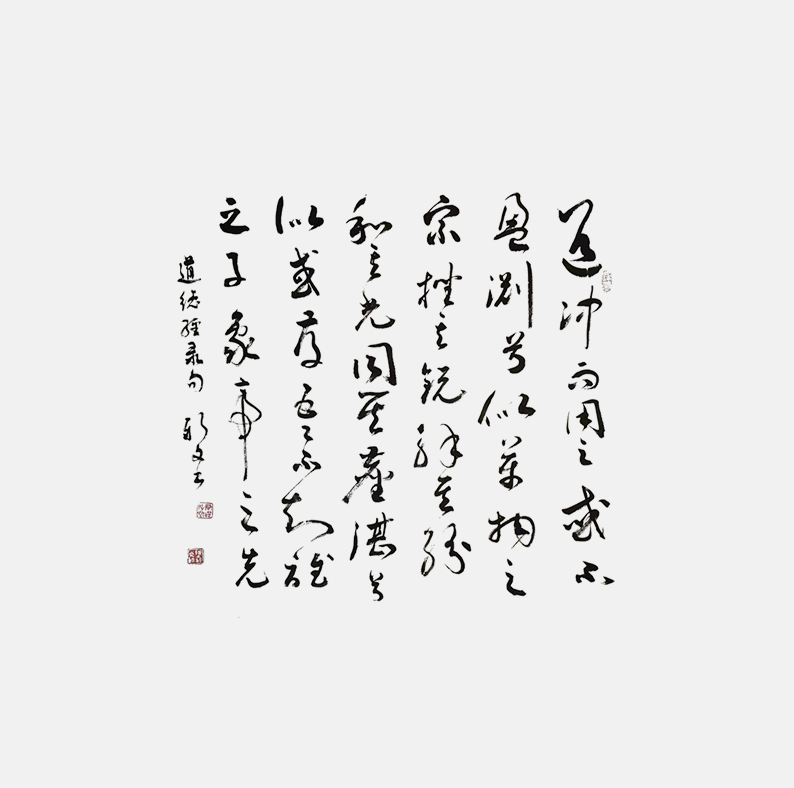 道冲而用之或不
盈淵兮似萬物之
宗挫其銳解其紛
和其光同其塵湛兮
似或存吾不知誰
之子象帝之先
道德經录句